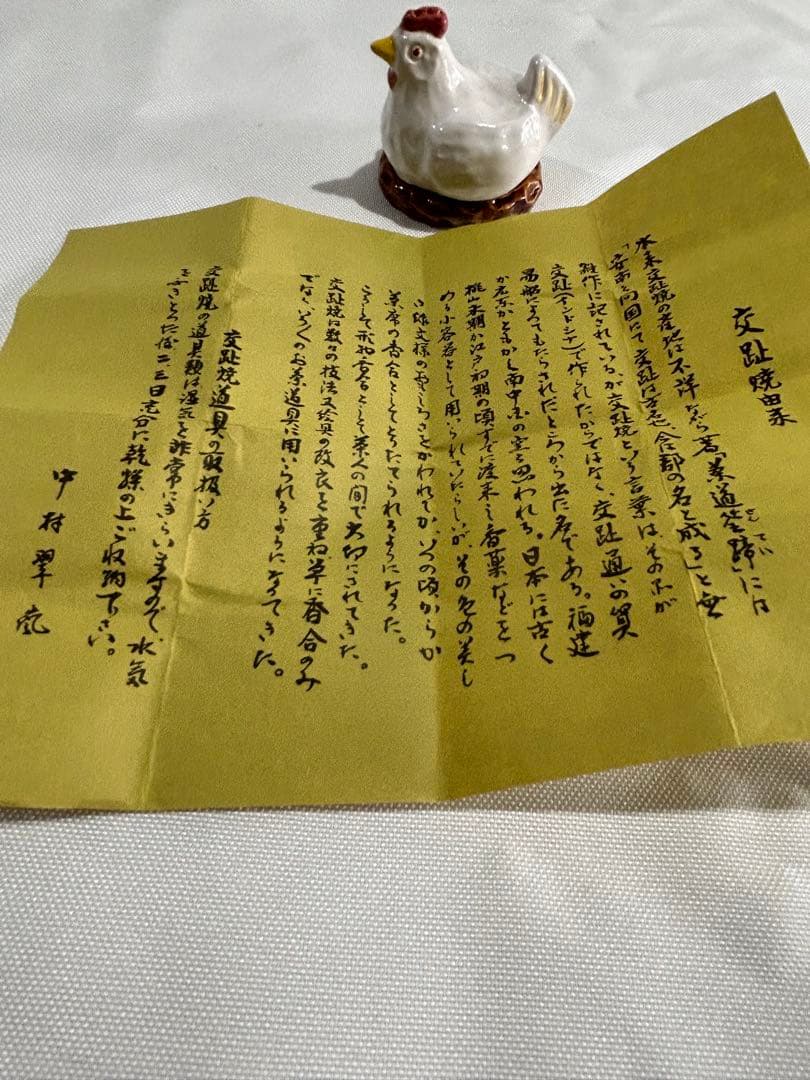 交趾焼由来
水来交趾焼の産地は不詳ながら著「茶道筌蹄」には
せんてい
「安南と同国にて交趾は号也、今は郡の名と成る」と無
雑作に記されている、が交趾焼という言葉は、その品が
交趾(インドシナ)で作られたからではなく、交趾通いの貿
易船によってもたらされたところから出た名である。福建
か広東かともかく南中国の窯と思われる。日本には古く
桃山末期か江戸初期の頃すでに渡来し香薬などをつ
める小容器として用いられていたらしいが、その色の美し
さ、形、文様のおもしろさとかわれてか、いつの頃からか
茶席の香合としてとりたてられるようになった。
こうして形物香合として茶人の間で大切にされてきた。
交趾焼は数々の技法又絵具の改良を重ね単に香合のみ
でなく、いろいろのお茶道具に用いられるようになってきた。
交趾焼道具の取扱い方
交趾焼の道具類は湿気を非常にきらいますので、水気
をふきとった後二、三日充分に乾燥の上ご収納下さい。
中村翠嵐